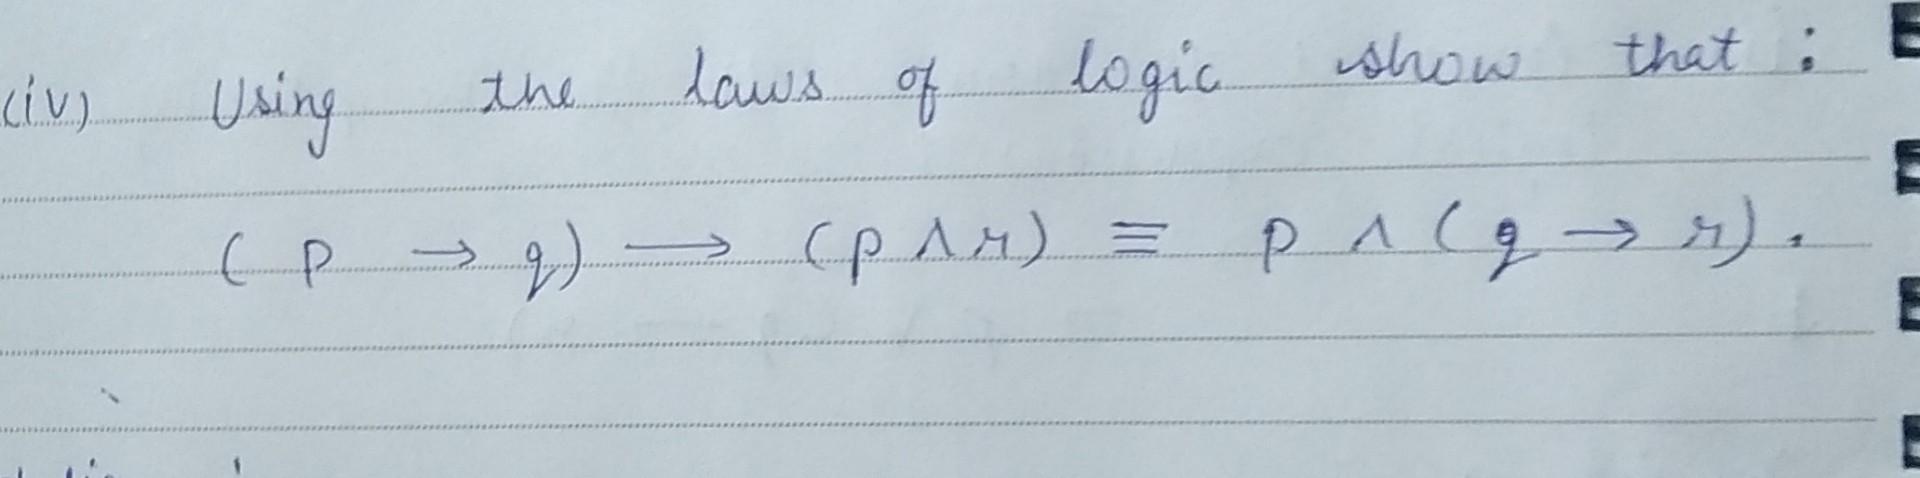 (iv) Using the laws of logic show that :
( p → q) → (p ∧ r) ≡ p ∧ (q → r).